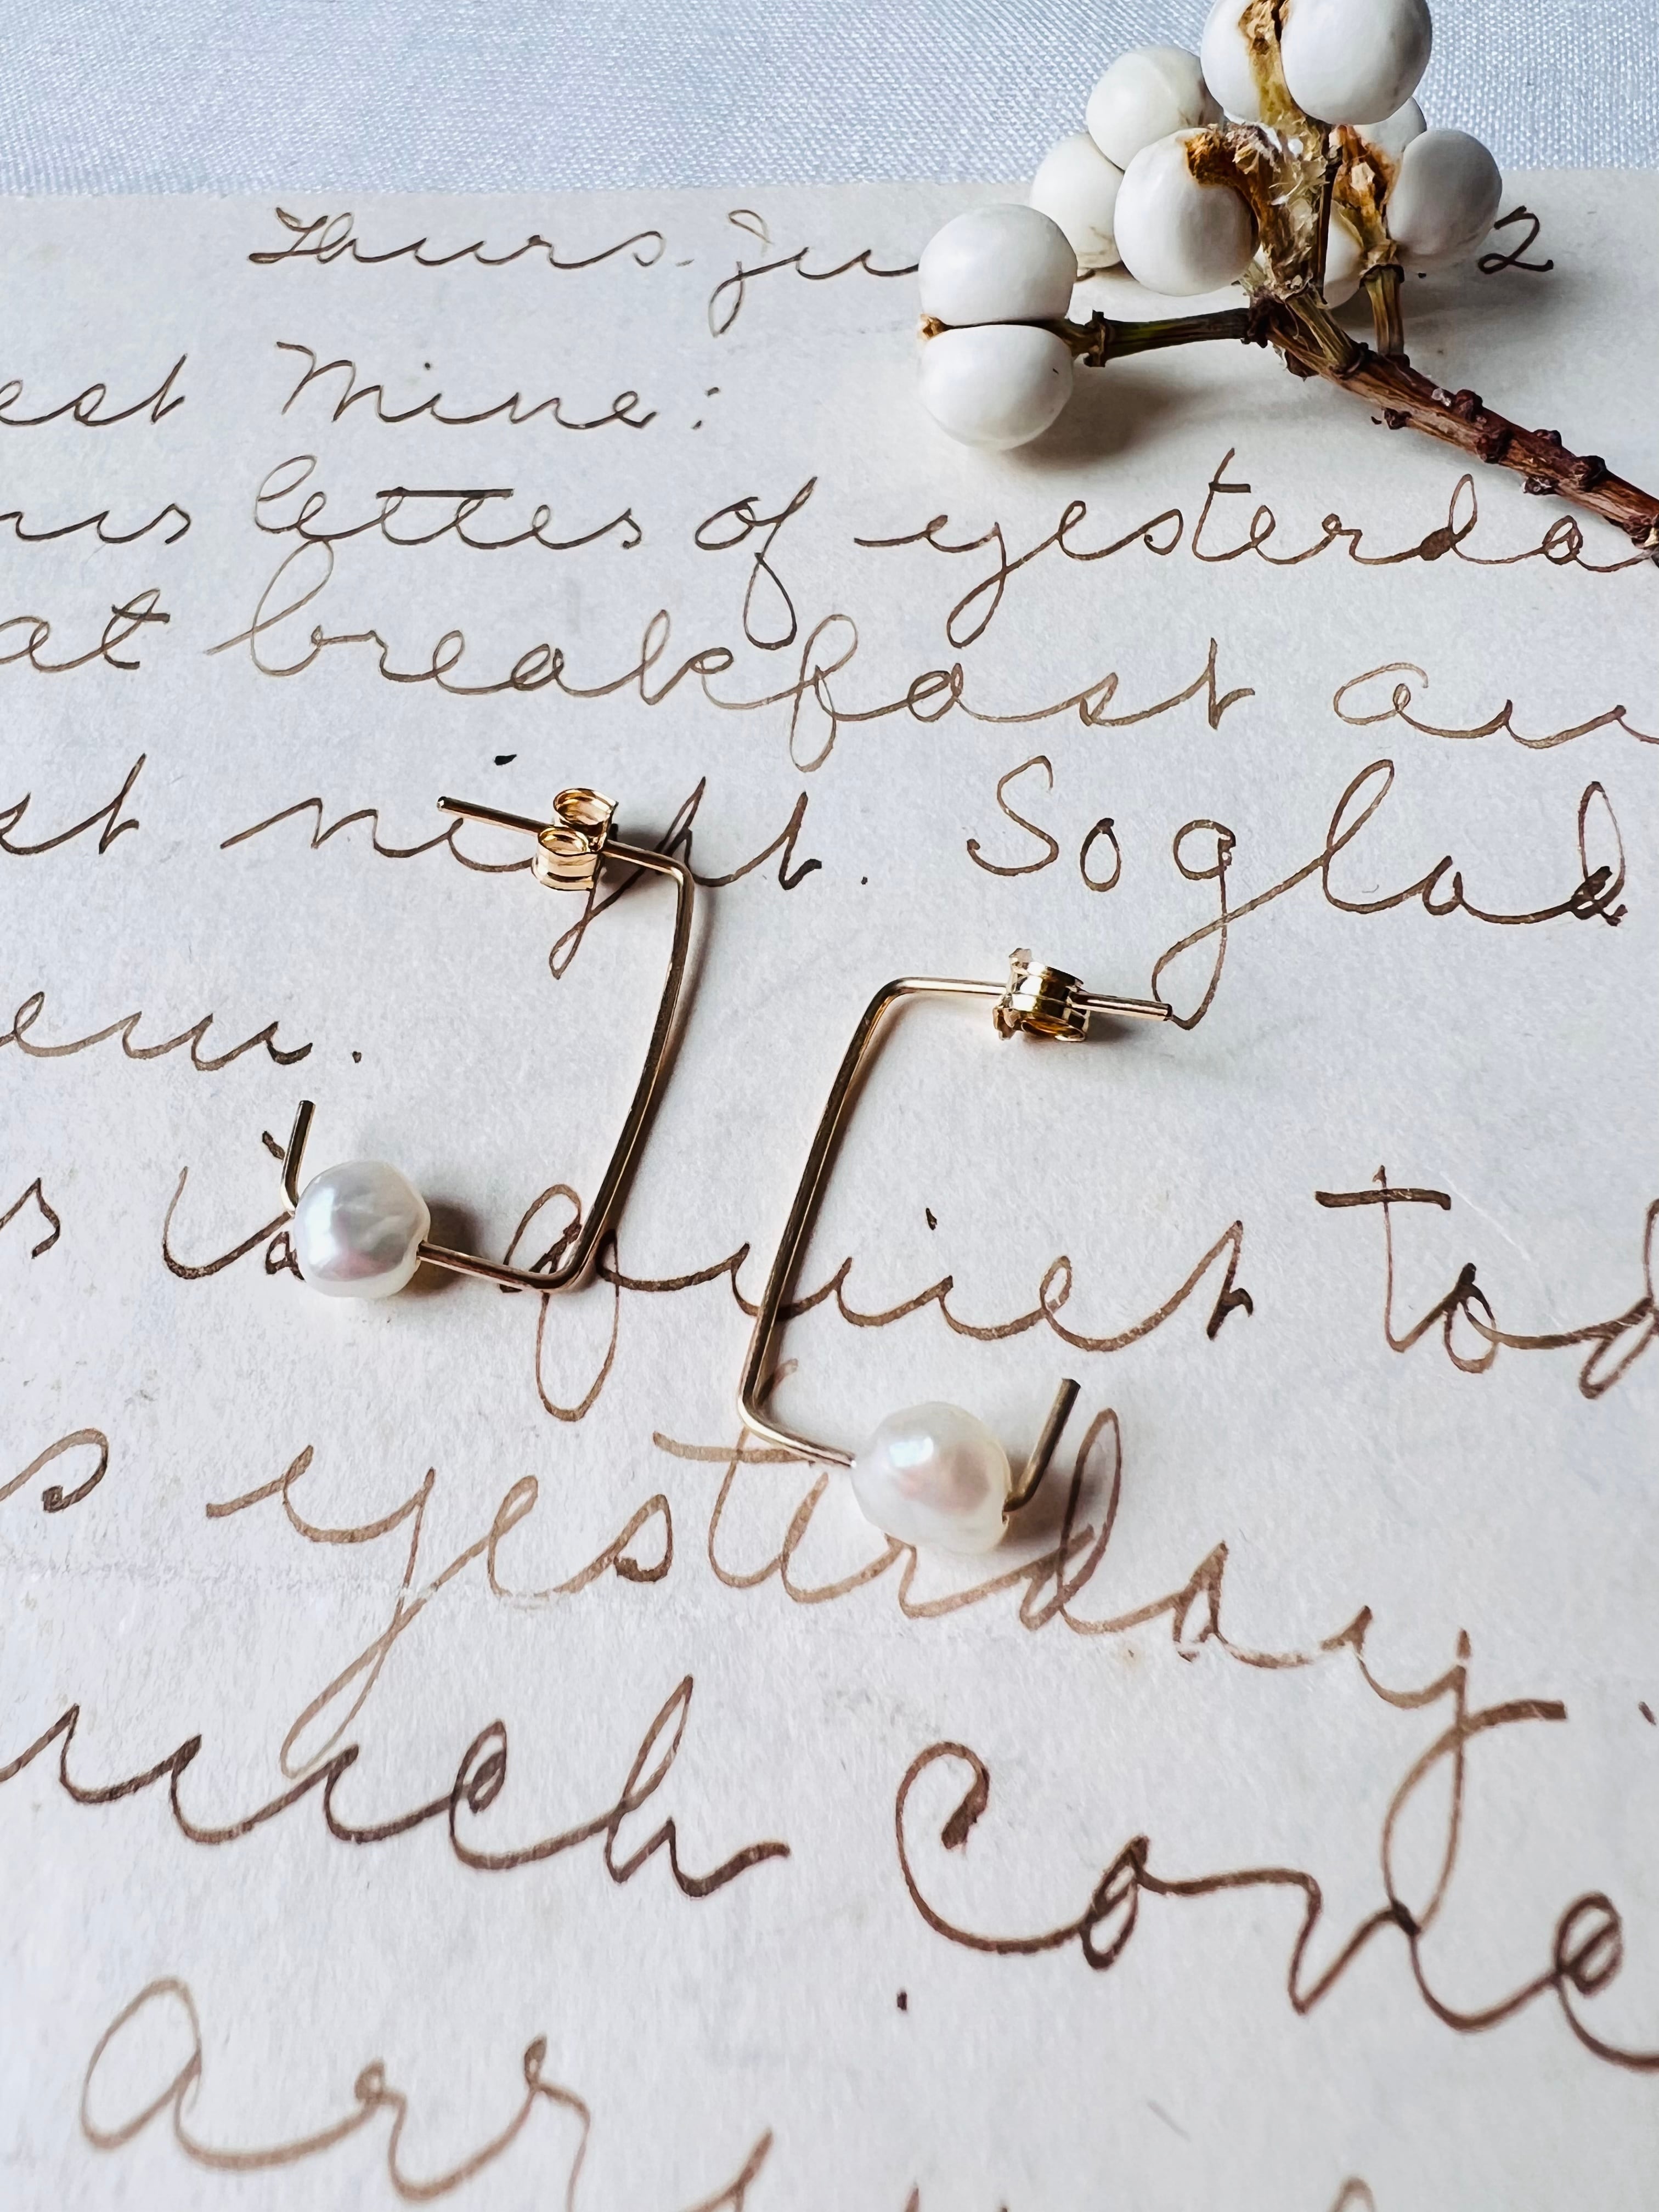 Thurs. Ju 2
est Mine:
letter of yesterda
at breakfast an
st night. So glad
em.
s it quiet tod
s yesterday.
uch Cone
Arr